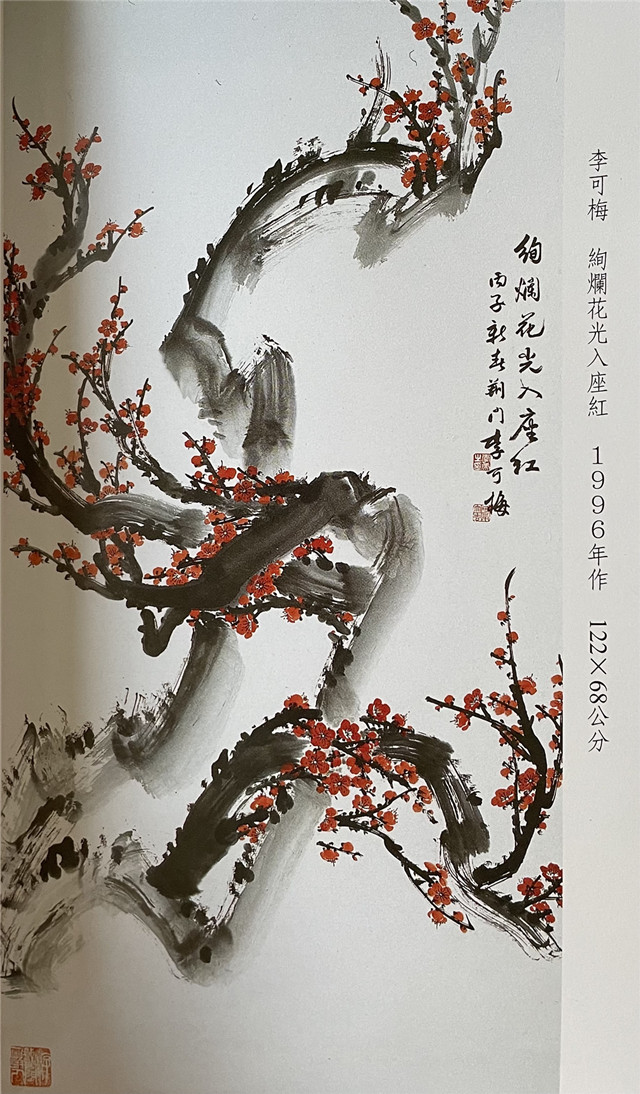 李可梅 絢爛花光入座紅 1996年作 122×68公分
絢爛花光入座红
丙子新春荆门李可梅